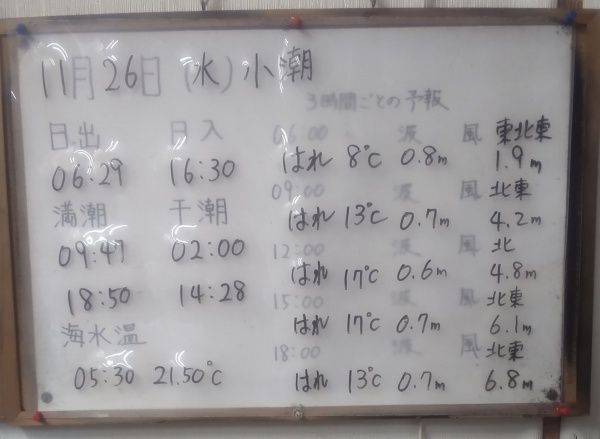 11月26日(水)小潮
3時間ごとの予報
日出 日入
06:29 16:30
満潮 干潮
09:47 02:00
18:50 14:28
海水温
05:30 21.50℃
06:00 波 風 東北東
はれ 8℃ 0.8m 1.9m
09:00 波 風 北東
はれ 13℃ 0.7m 4.2m
12:00 波 風 北
はれ 17℃ 0.6m 4.8m
15:00 波 風 北東
はれ 17℃ 0.7m 6.1m
18:00 波 風 北東
はれ 13℃ 0.7m 6.8m